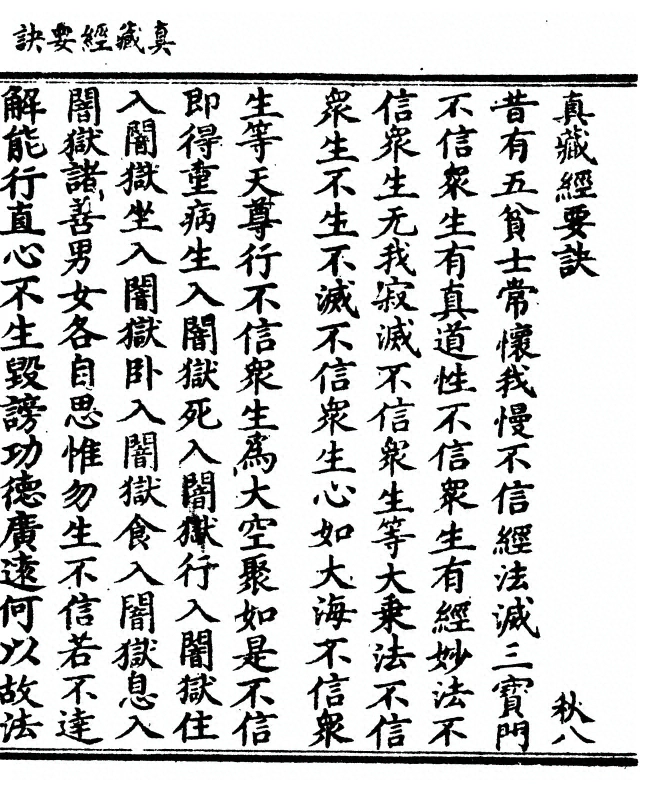 真藏經要訣
真藏經要訣 秋八
昔有五貧士常懷我慢不信經法滅三寶門
不信衆生有真道性不信衆生有經妙法不
信衆生无我寂滅不信衆生等大乗法不信
衆生不生不滅不信衆生心如大海不信衆
生等天尊行不信衆生爲大空聚如是不信
即得重病生入闇獄死入闇獄行入闇獄住
入闇獄坐入闇獄卧入闇獄食入闇獄息入
闇獄諸善男女各自思惟勿生不信若不達
解能行直心不生毀謗功德廣遠何以故法